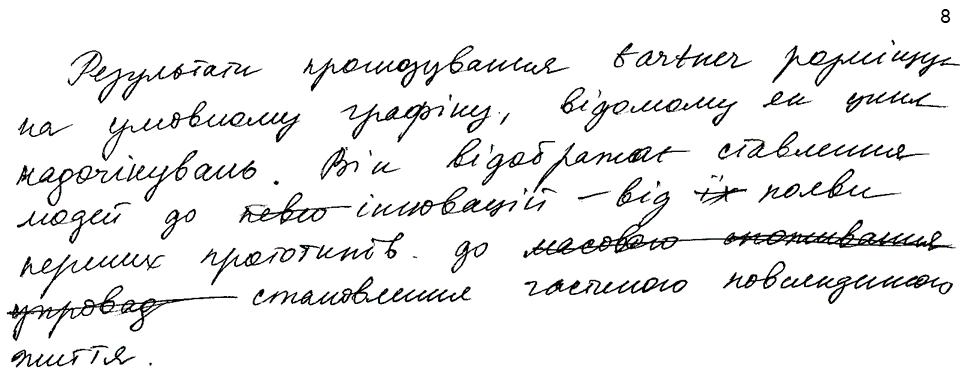 8
Результати прогнозування Gartner розміщує
на умовному графіку, відомому як цикл
надочікувань. Він відображає ставлення
людей до певно інновацій – від їх появи
перших прототипів до масового споживання
упровад становлення частиною повсякденного
життя.